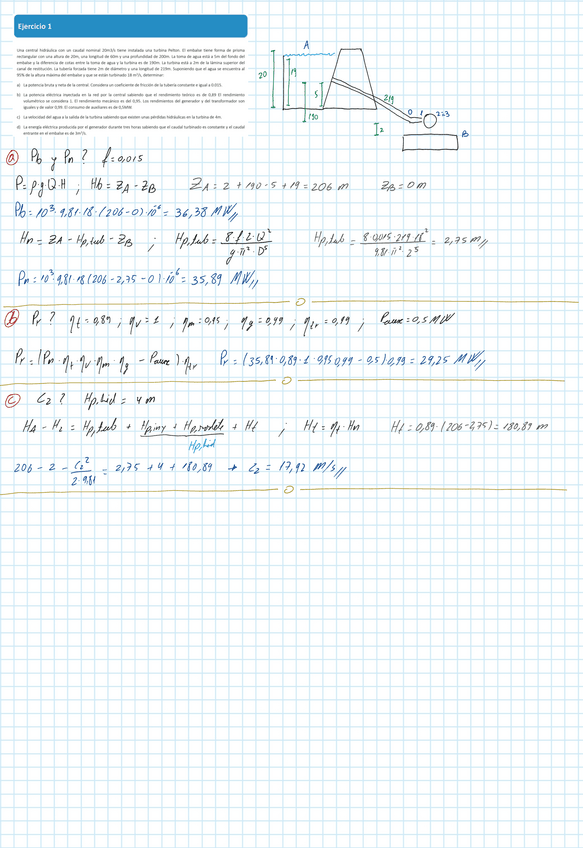 Ejercicio 1
Una central hidráulica con un caudal nominal 20m3/s tiene instalada una turbina Pelton. El embalse tiene forma de prisma
rectangular con una altura de 20m, una longitud de 60m y una profundidad de 200m. La toma de agua está a 5m del fondo del
embalse y la diferencia de cotas entre la toma de agua y la turbina es de 190m. La turbina está a 2m de la lámina superior del
canal de restitución. La tubería forzada tiene 2m de diámetro y una longitud de 219m. Suponiendo que el agua se encuentra al
95% de la altura máxima del embalse y que se están turbinado 18 m³/s, determinar:
a) La potencia bruta y neta de la central. Considera un coeficiente de fricción de la tubería constante e igual a 0.015.
b) La potencia eléctrica inyectada en la red por la central sabiendo que el rendimiento teórico es de 0,89 El rendimiento
volumétrico se considera 1. El rendimiento mecánico es del 0,95. Los rendimientos del generador y del transformador son
iguales y de valor 0,99. El consumo de auxiliares es de 0,5MW
c) La velocidad del agua a la salida de la turbina sabiendo que existen unas pérdidas hidráulicas en la turbina de 4m.
d) La energía eléctrica producida por el generador durante tres horas sabiendo que el caudal turbinado es constante y el caudal
entrante en el embalse es de 3m³/s.
A
20
19
5
190
219
0 1 2=3
2
B
a Pb y Pn ? f=0,015
P=ρ·g·Q·H ; Hb = ZA - ZB ZA = 2 + 190 - 5 + 19 = 206 m ZB = 0 m
Pb = 10³ · 9,81 · 18 · (206 - 0) · 10⁻⁶ = 36,38 MW
Hn = ZA - Hp,tub - ZB ; Hp,tub = 8·f·L·Q² / g·π²·D⁵ Hp,tub = 8·0,015·219·18² / 9,81·π²·2⁵ = 2,75 m
Pn = 10³ · 9,81 · 18 (206 - 2,75 - 0) · 10⁻⁶ = 35,89 MW
b Pr ? ηt = 0,89 ; ηv = 1 ; ηm = 0,95 ; ηg = 0,99 ; ηtr = 0,99 ; Paux = 0,5 MW
Pr = (Pn · ηt · ηv · ηm · ηg - Paux) · ηtr Pr = (35,89 · 0,89 · 1 · 0,95 · 0,99 - 0,5) 0,99 = 29,25 MW
c C2 ? Hp,hid = 4 m
HA - H2 = Hp,tub + Hp,iny + Hp,rodete + Ht ; Ht = ηt · Hn Ht = 0,89 · (206 - 2,75) = 180,89 m
Hp,hid
206 - 2 - C2² / 2·9,81 = 2,75 + 4 + 180,89 → C2 = 17,92 m/s